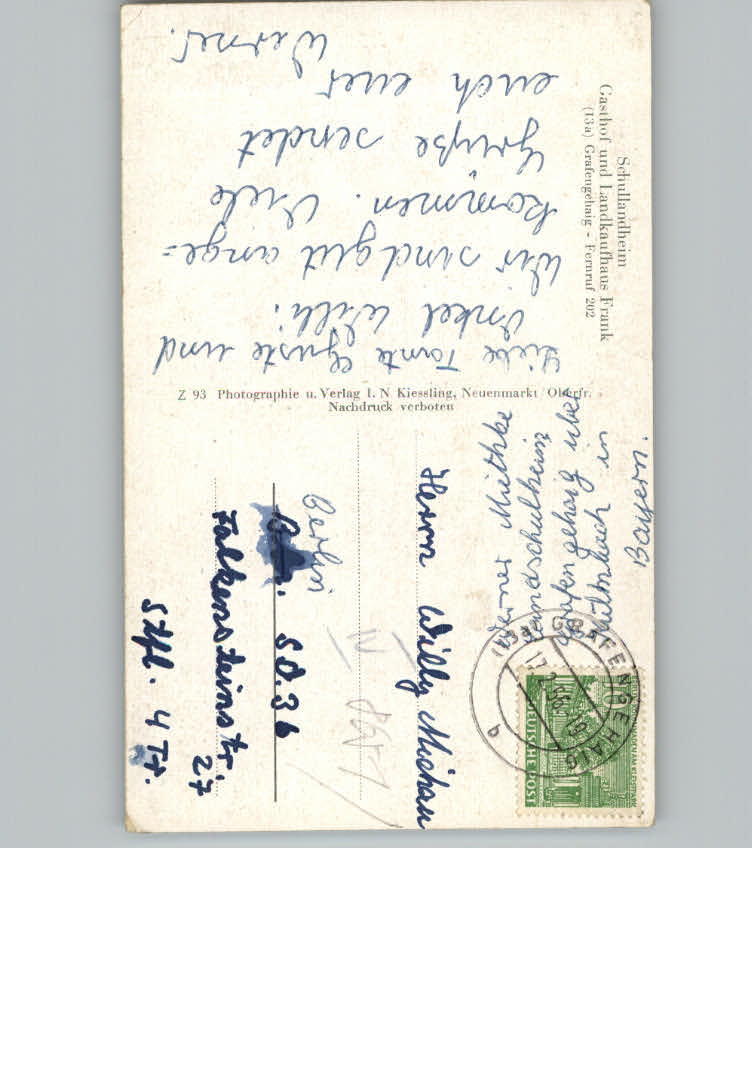 Schullandheim
Gasthof und Landkaufhaus Frank
(13a) Grafengehaig - Fernruf 202
Liebe Tante Guste und
Onkel Willi!
Wir sind gut ange=
kommen. Viele
Grüße sendet
euch euer
Werner.
Z 93 Photographie u. Verlag I. N Kiessling, Neuenmarkt Oberfr.
Nachdruck verboten
Werner Miethke
Landschulheim
Grafengehaig über
Kulmbach in
Bayern.
Herrn Willy Michau
Berlin
SO. 36
Falkensteinstr.
27
Stfl. 4 Tr.
(13a) GRAFENGEHAIG
17.2.56.19
b
DEUTSCHE POST
10